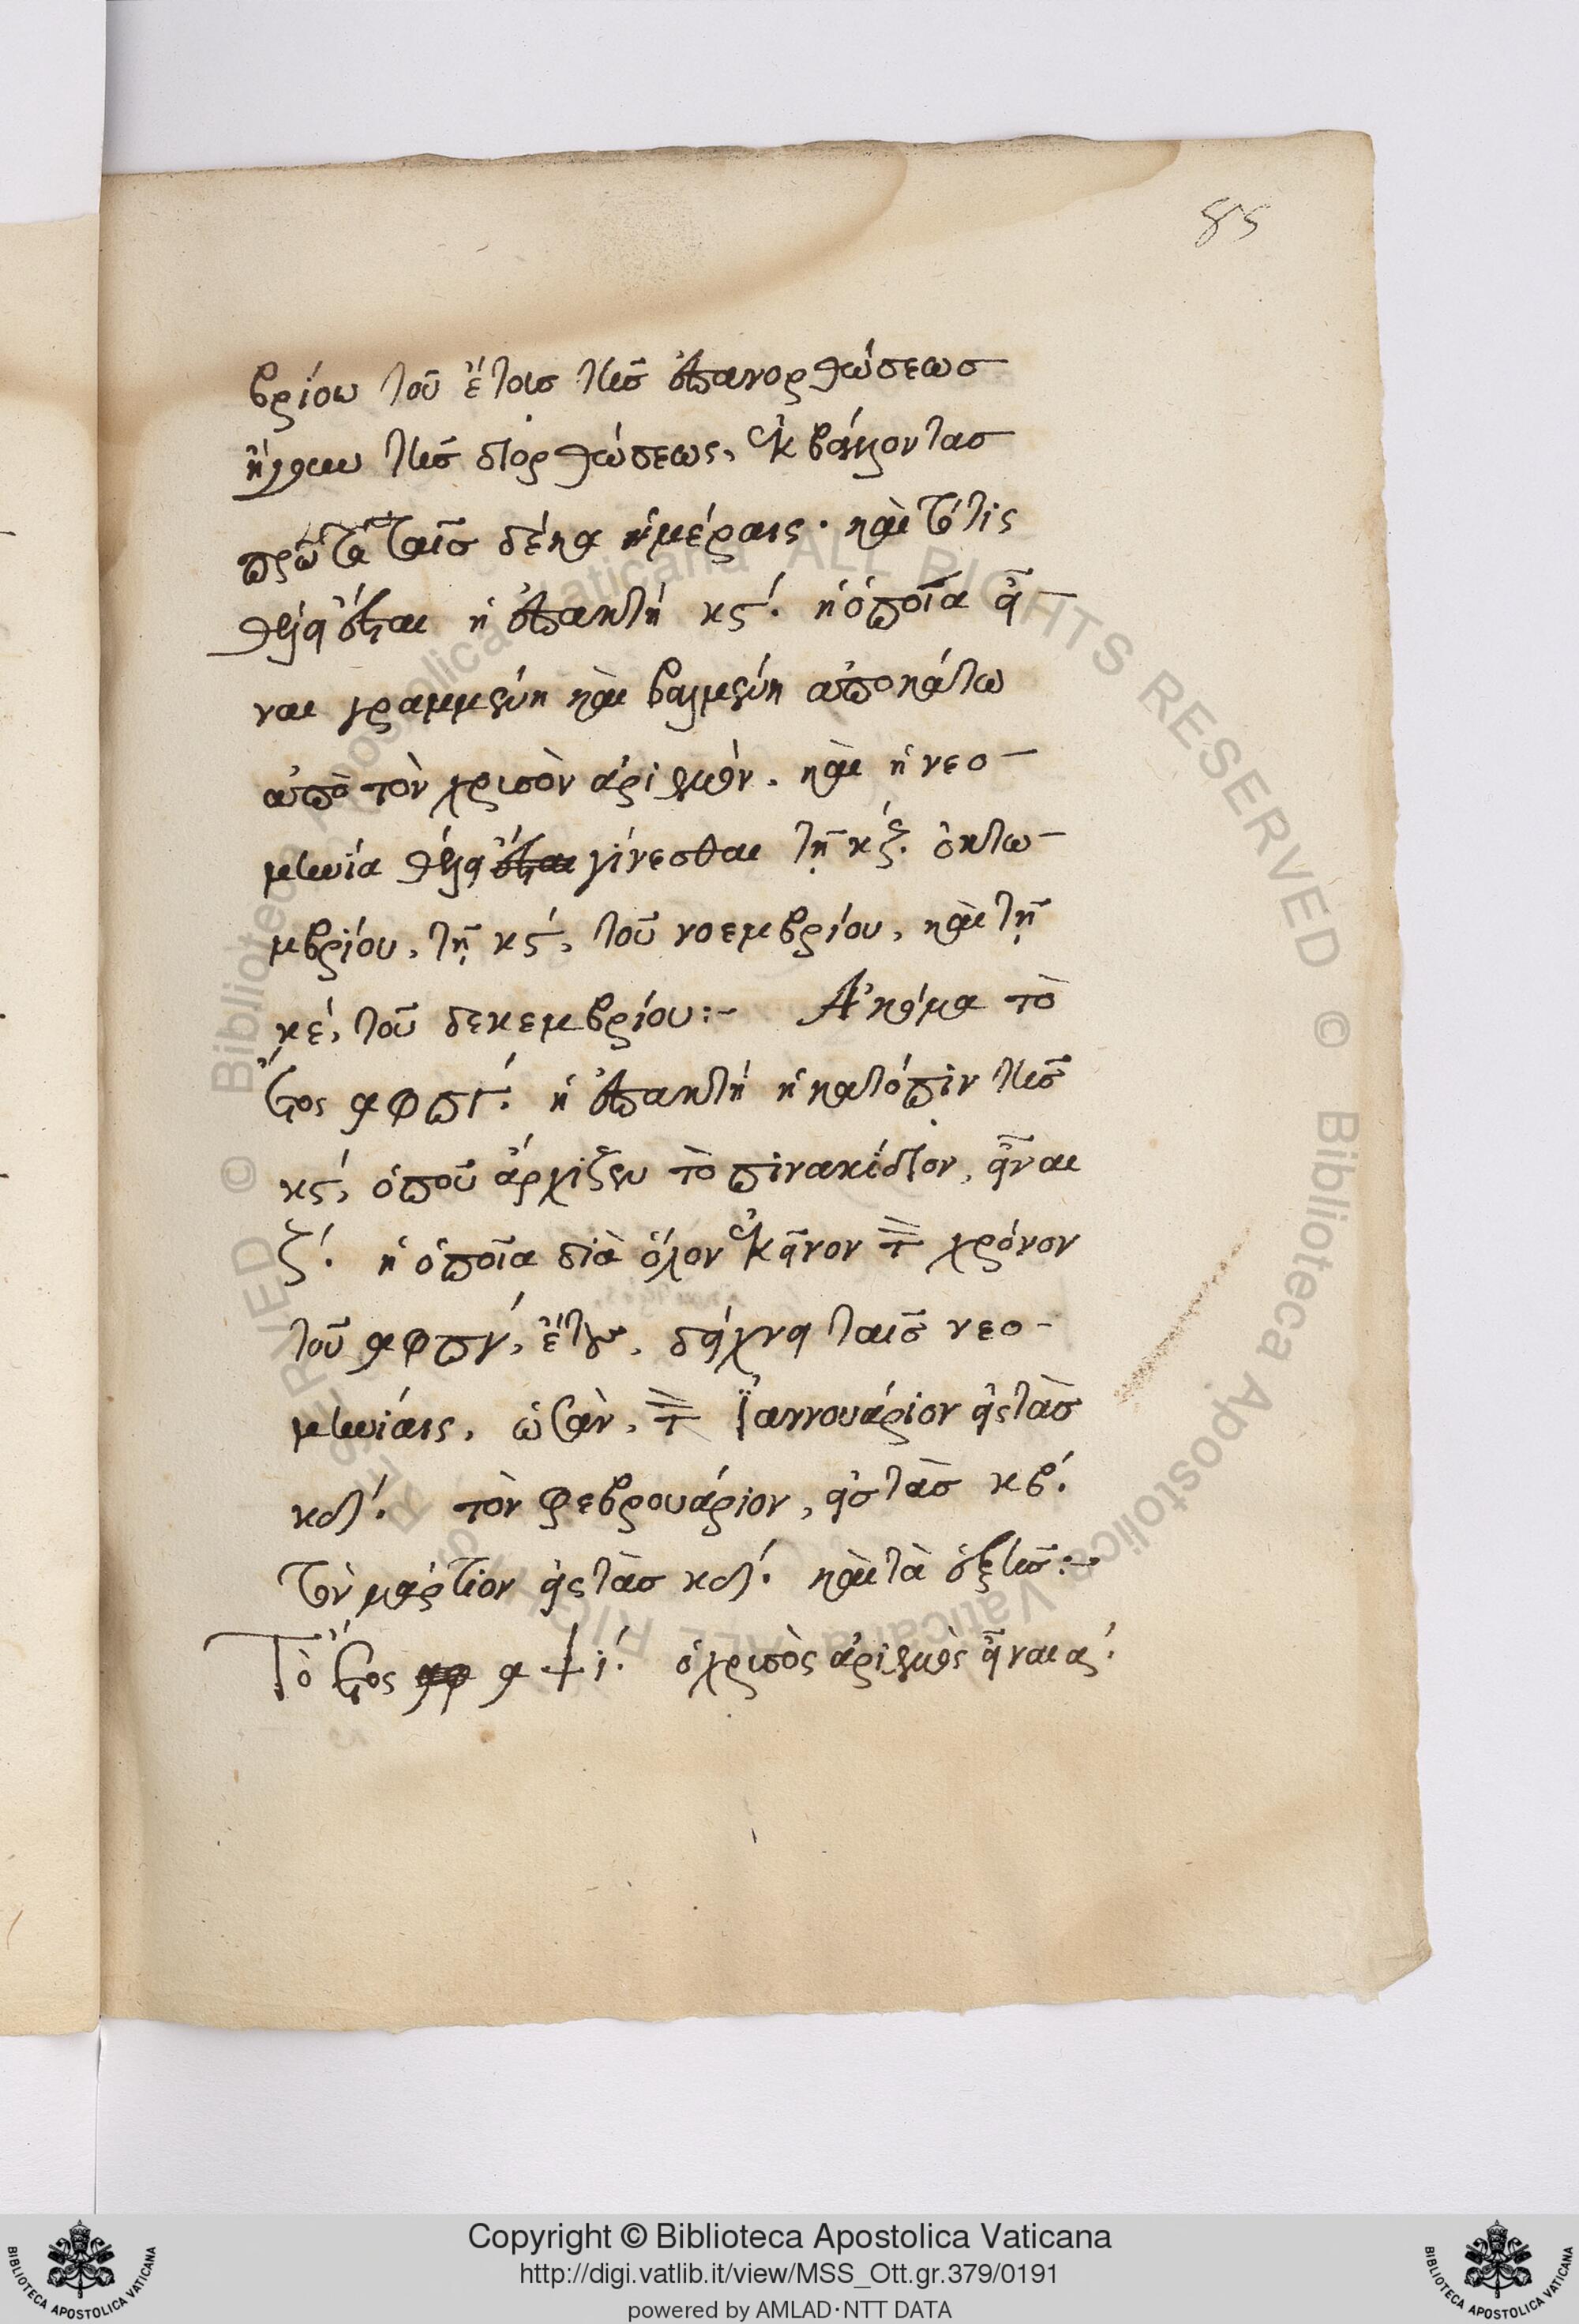 85
βρίου τοῦ ἔτους τῆς ἐπανορθώσεως
ἤγουν τῆς διορθώσεως, ἐκβάζοντας
πρῶτα ταῖς δέκα ἡμέραις. καὶ τότις
θέλει ἔσται ἡ ἐπακτὴ κϛ΄. ἡ ὁποῖα εἶ-
ναι γραμμένη καὶ βαλμένη αποκάτω
ἀπὸ τὸν χρισὸν ἀριθμόν. καὶ ἡ νεο-
μηνία θέλει γίνεσθαι τῇ κζ΄. ὀκτω-
μβρίου, τῇ κϛ΄, τοῦ νοεμβρίου, καὶ τῇ
κε΄, τοῦ δεκεμβρίου:- Ἀκόμα τὸ
ἔτος αφπγ΄. ἡ ἐπακτὴ ἡ κατόπιν τῆς
κϛ΄, ὁποῦ ἀρχίζει τὸ πινακίδιον, εἶναι
ζ΄. ἡ ὁποῖα διὰ ὅλον ἐκεῖνον τὸν χρόνον
τοῦ αφπγ΄, ἔτους, δείχνει ταῖς νεο-
μηνίαις, ὡσὰν, τὸν Ἰαννουάριον εἰς τὰς
κδ΄. τὸν φεβρουάριον, εἰς τὰς κβ΄.
τὸν μάρτιον εἰς τὰς κδ΄. καὶ τὰ ἑξῆς:-
Τὸ ἔτος αψι΄. ὁ χρισὸς ἀριθμὸς εἶναι α΄.
Copyright © Biblioteca Apostolica Vaticana
http://digi.vatlib.it/view/MSS_Ott.gr.379/0191
powered by AMLAD·NTT DATA
BIBLIOTECA APOSTOLICA VATICANA
BIBLIOTECA APOSTOLICA VATICANA
© Biblioteca Apostolica Vaticana ALL RIGHTS RESERVED
© Biblioteca Apostolica Vaticana ALL RIGHTS RESERVED